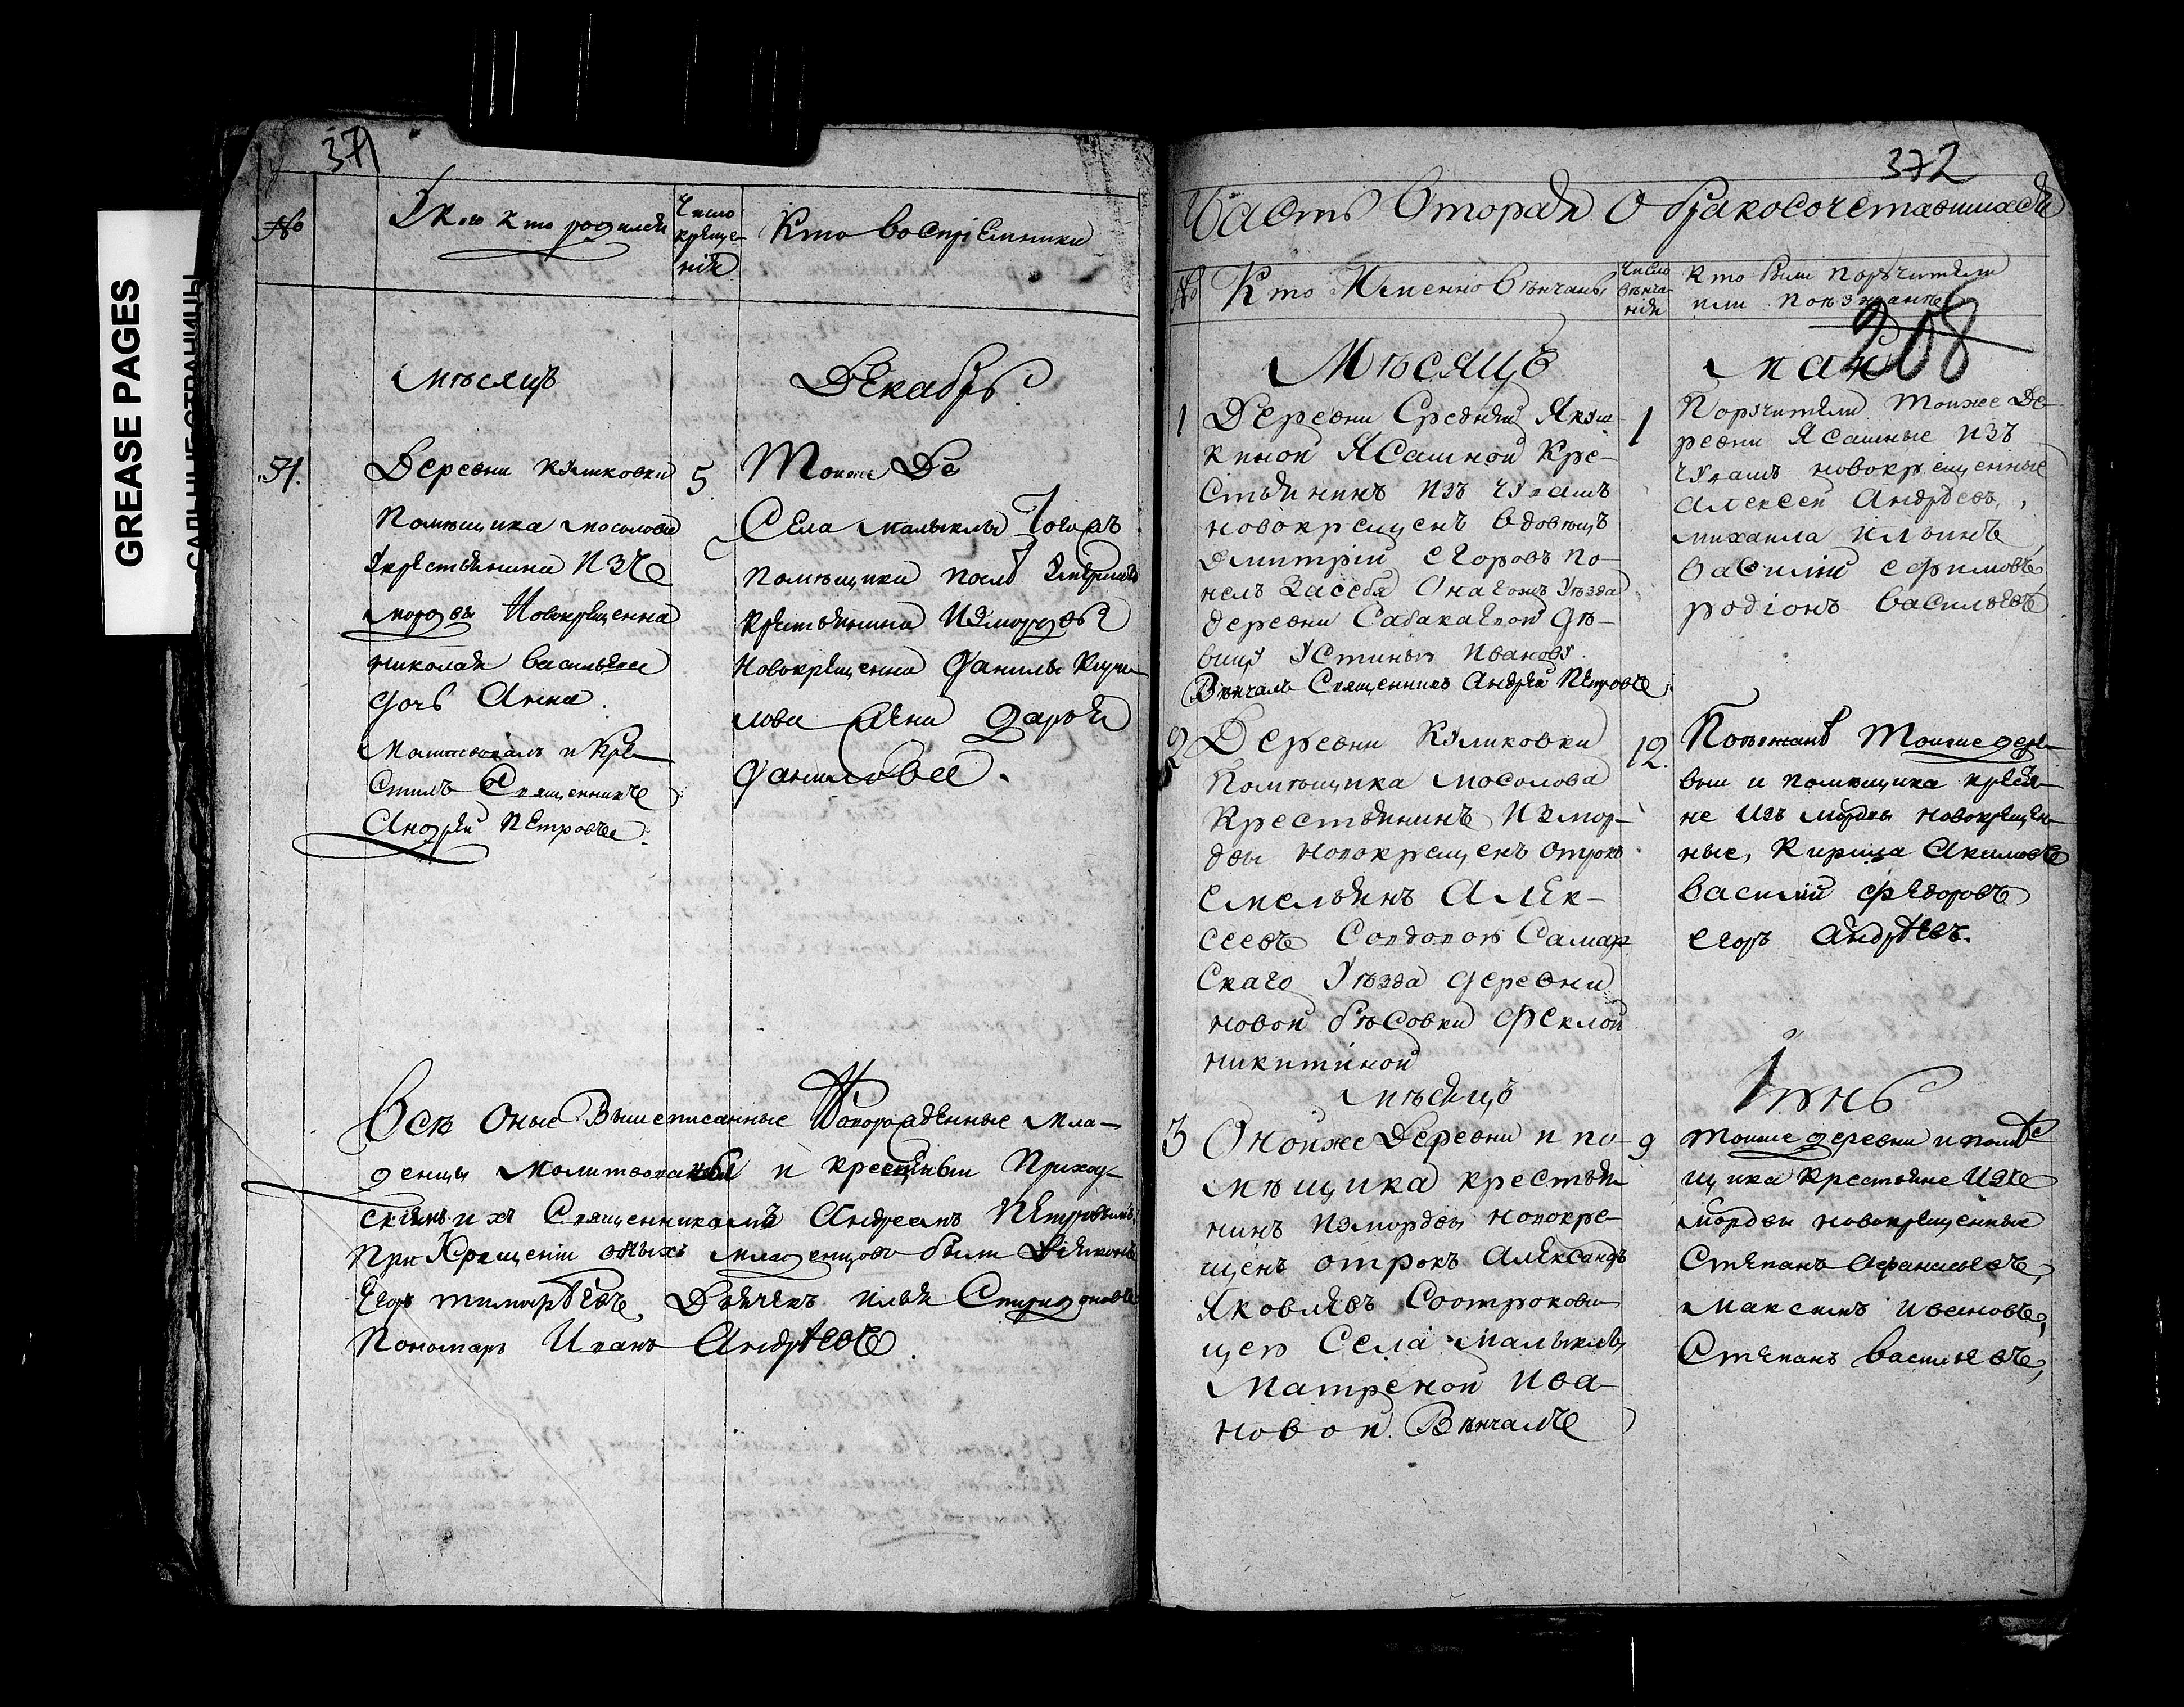 GREASE PAGES
САЛЬНЫЕ СТРАНИЦЫ
371
№
У кого кто родился
Число
креще-
нiя
Кто воспрiемники
Мѣсяцъ
Декабрь
51.
Деревни Куликовки
помѣщика Мосолова
у крестьянина изъ
мордвы новокрещенна
Николая Васильева
дочь Анна.
Молитвовалъ и кре-
стилъ Священникъ
Андрей Петровъ.
5
Тоиже де
Села Малыклы тогожъ
помѣщика
крестьянина изъ мордвы
новокрещенна Данилы
дочь Дарья
Данилова.
Всѣ оные вышеписанные новорожденные мла-
денцы молитвованы и крещены приход-
скимъ ихъ Священникомъ Андреемъ Петровымъ,
при крещенiи оныхъ младенцовъ были Дьяконъ
Егоръ Тимофѣевъ, Дьячекъ Илья Спиридоновъ
Пономарь Иванъ Андрѣевъ.
372
Часть Вторая О бракосочетавшихся
№
Кто Именно Вѣнчаны
Число
вѣнча-
нiя
Кто были поручители
или поѣзжанѣ
208
Мѣсяцъ
май
1
Деревни Средней Якуш-
киной Ясашной кре-
стьянинъ изъ чувашъ
новокрещенъ вдовецъ
Дмитрiй Егоровъ по-
нелъ за себя онагожъ уѣзда
деревни Сабакаевой дѣ-
вицу Устинью Иванову.
Вѣнчалъ Священникъ Андрей Петровъ.
1
Поручители тоиже де-
ревни Ясашные изъ
чувашъ новокрещенные
Алексей Андрѣевъ,
Михаила Ильинъ
Василiй Ефимовъ
Родiонъ Васильевъ
2
Деревни Куликовки
помѣщика Мосолова
крестьянинъ из мор-
двы новокрещенъ отрокъ
Емельянъ Алек-
сеевъ со вдовою Самар
скаго уѣзда деревни
новой бѣсовки Феклой
Никитиной
12.
Поѣзжанѣ тоиже дере-
вни и помѣщика крестья-
не изъ мордвы новокрещен-
ные, Кирила Акимовъ
Василiй Федоровъ
Егоръ Андрѣевъ.
мѣсяцъ
Iюнь
3
Оноиже деревни и по-
мѣщика крестья
нинъ изморды новокре-
щенъ отрокъ Александръ
Яковлевъ со отрокови-
цею Села Малыклы
Матреной Ива-
новой. Вѣнчалъ
9
Тоиже деревни и помѣ
щика крестьяне изъ
мордвы новокрещенные
Степанъ Афанасьевъ,
Максимъ Ивановъ,
Степанъ Васильевъ,